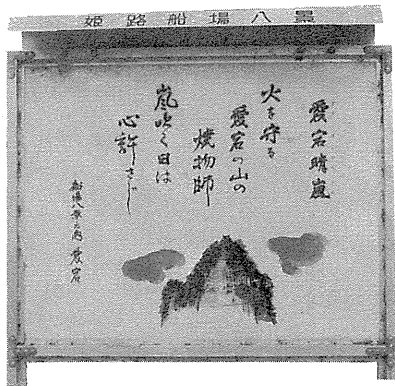 姫路船場八景
愛宕晴嵐
火を守る
愛宕の山の
焼物師
嵐吹く日は
心許さじ
船場八景之内 愛宕